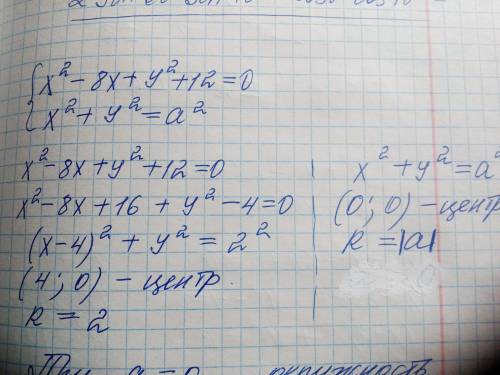 x² - 8x + y² + 12 = 0
x² + y² = a²
x² - 8x + y² + 12 = 0
x² - 8x + 16 + y² - 4 = 0
(x-4)² + y² = 2²
(4; 0) - центр
R = 2
x² + y² = a²
(0; 0) - центр
R = |a|
a = 0 окружность